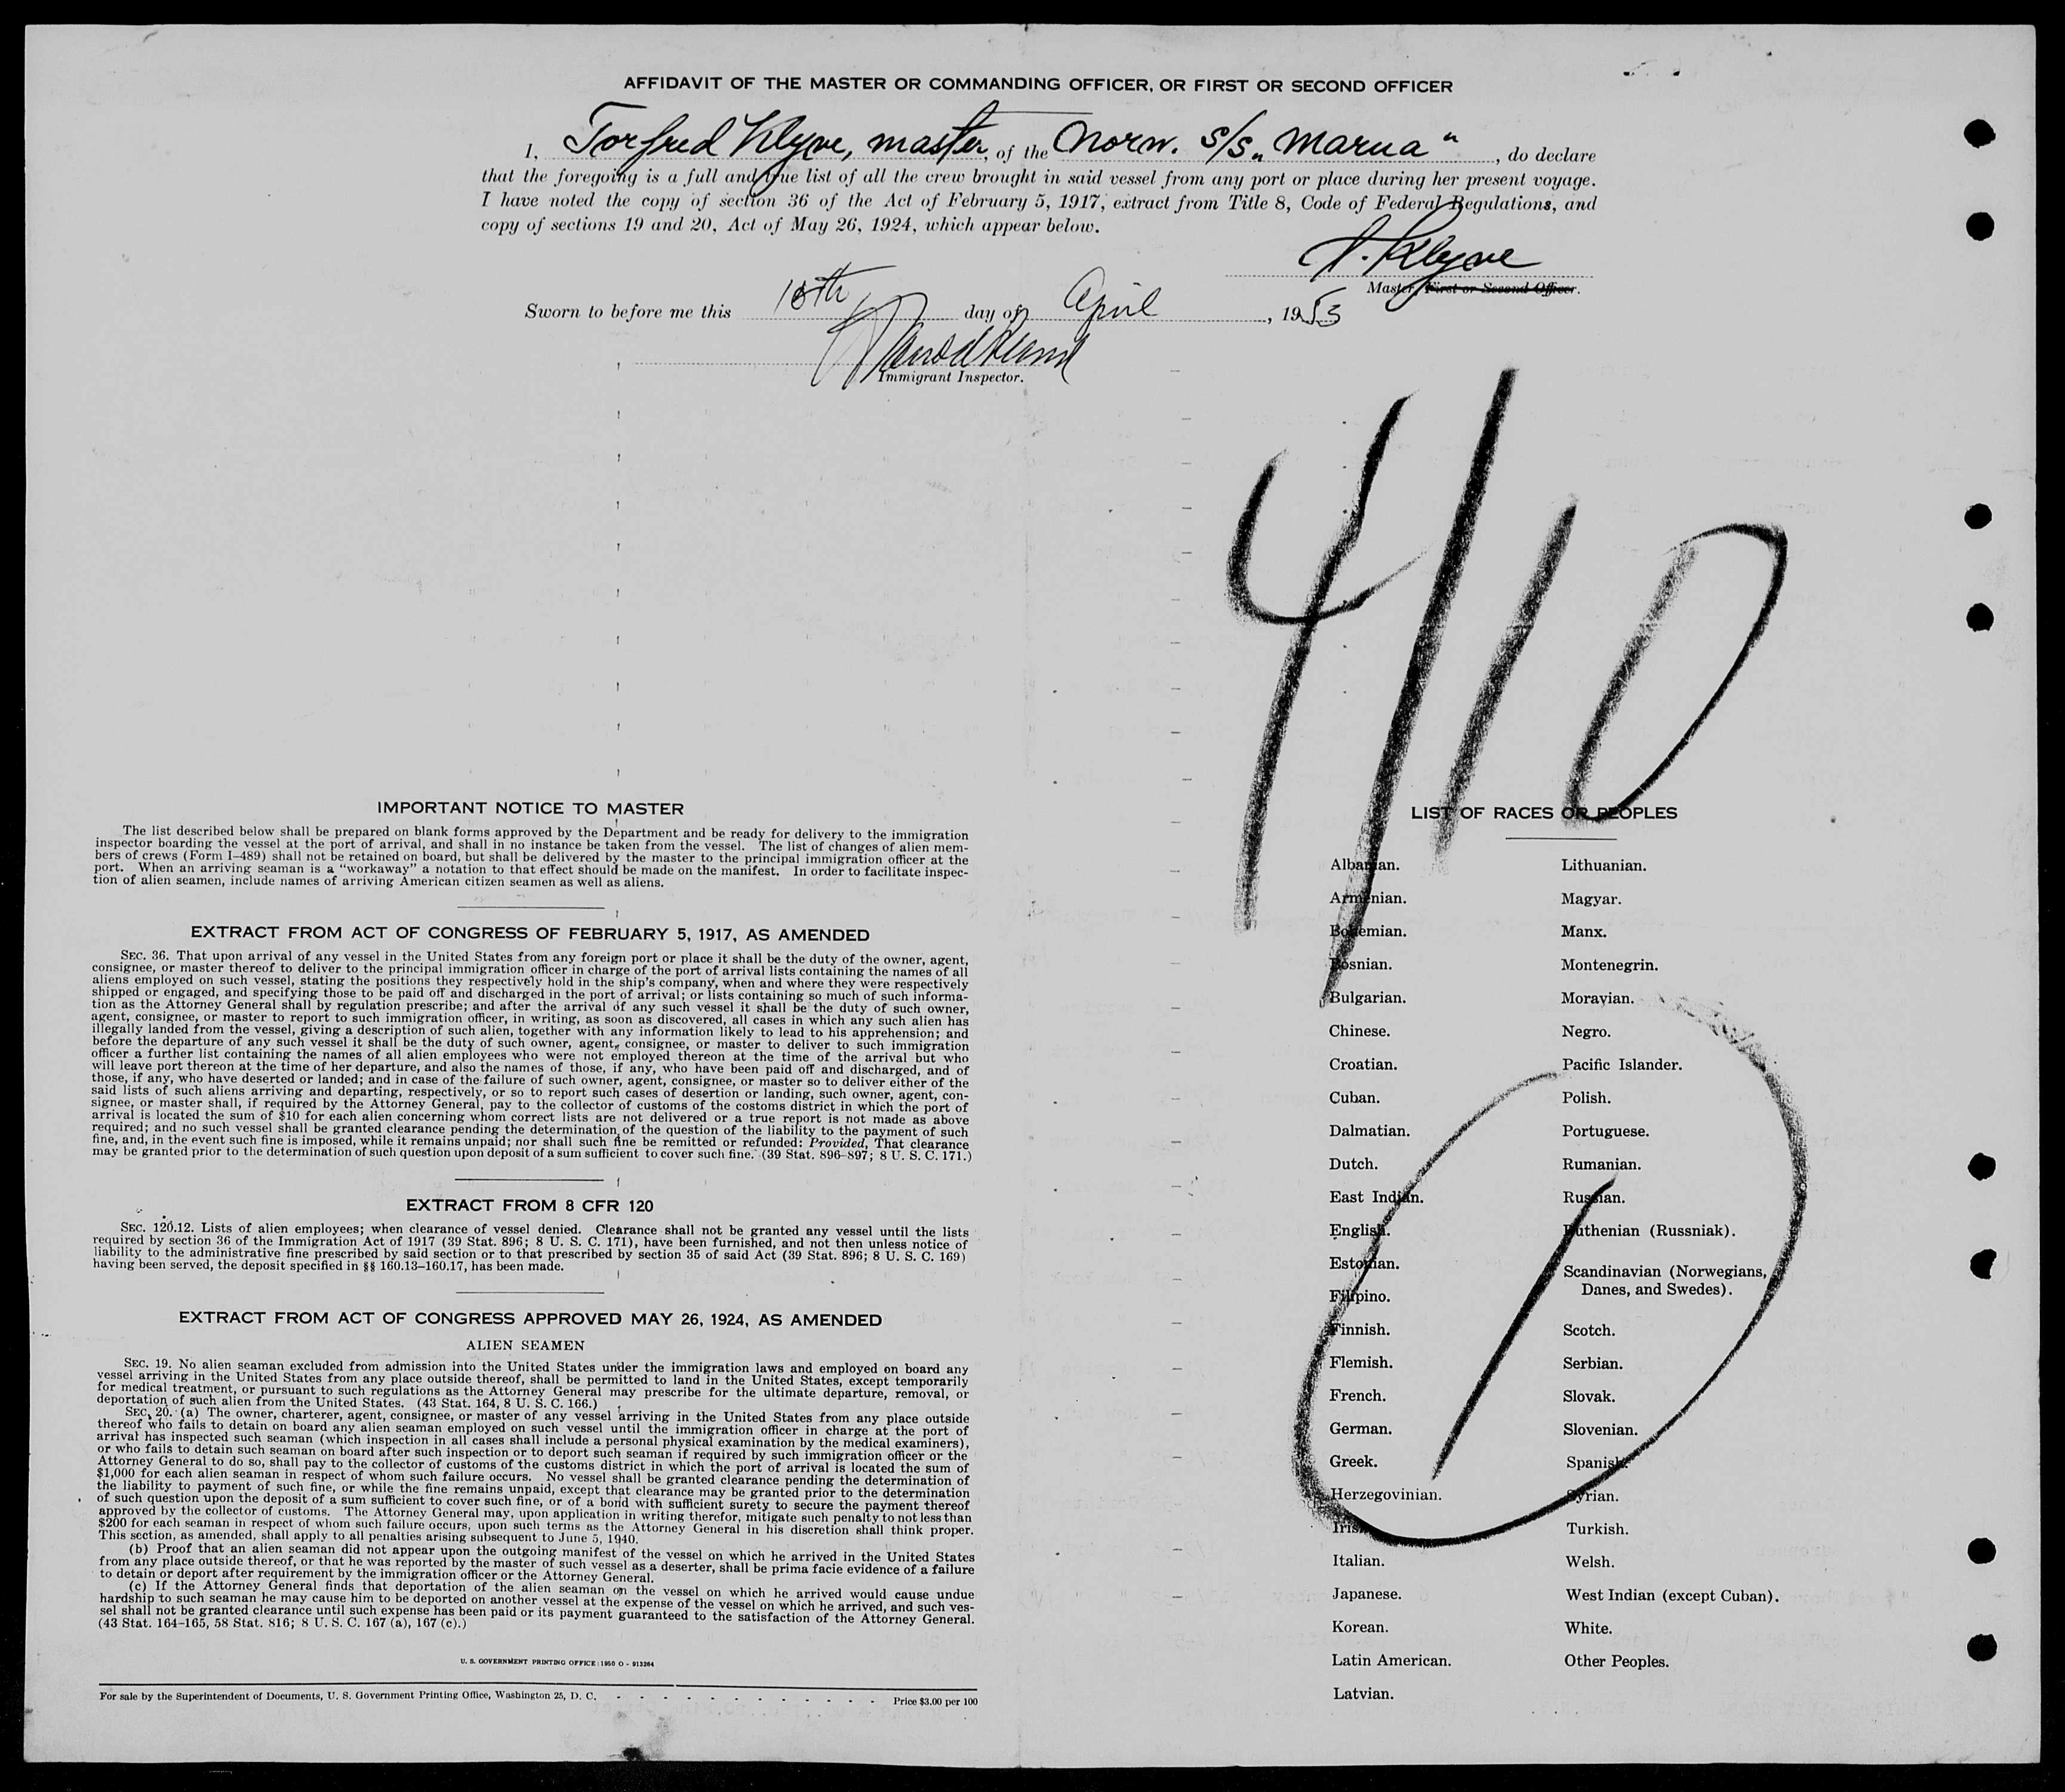 AFFIDAVIT OF THE MASTER OR COMMANDING OFFICER, OR FIRST OR SECOND OFFICER
I, Torfred Klyve, master, of the Norw. s/s „Marua", do declare
that the foregoing is a full and true list of all the crew brought in said vessel from any port or place during her present voyage.
I have noted the copy of section 36 of the Act of February 5, 1917, extract from Title 8, Code of Federal Regulations, and
copy of sections 19 and 20, Act of May 26, 1924, which appear below.
T. Klyve
Master, First or Second Officer.
Sworn to before me this day of April, 1953
Immigrant Inspector.
4/10
IMPORTANT NOTICE TO MASTER
The list described below shall be prepared on blank forms approved by the Department and be ready for delivery to the immigration
inspector boarding the vessel at the port of arrival, and shall in no instance be taken from the vessel. The list of changes of alien mem-
bers of crews (Form I-489) shall not be retained on board, but shall be delivered by the master to the principal immigration officer at the
port. When an arriving seaman is a "workaway" a notation to that effect should be made on the manifest. In order to facilitate inspec-
tion of alien seamen, include names of arriving American citizen seamen as well as aliens.
EXTRACT FROM ACT OF CONGRESS OF FEBRUARY 5, 1917, AS AMENDED
SEC. 36. That upon arrival of any vessel in the United States from any foreign port or place it shall be the duty of the owner, agent,
consignee, or master thereof to deliver to the principal immigration officer in charge of the port of arrival lists containing the names of all
aliens employed on such vessel, stating the positions they respectively hold in the ship's company, when and where they were respectively
shipped or engaged, and specifying those to be paid off and discharged in the port of arrival; or lists containing so much of such informa-
tion as the Attorney General shall by regulation prescribe; and after the arrival of any such vessel it shall be the duty of such owner,
agent, consignee, or master to report to such immigration officer, in writing, as soon as discovered, all cases in which any such alien has
illegally landed from the vessel, giving a description of such alien, together with any information likely to lead to his apprehension; and
before the departure of any such vessel it shall be the duty of such owner, agent, consignee, or master to deliver to such immigration
officer a further list containing the names of all alien employees who were not employed thereon at the time of the arrival but who
will leave port thereon at the time of her departure, and also the names of those, if any, who have been paid off and discharged, and of
those, if any, who have deserted or landed; and in case of the failure of such owner, agent, consignee, or master so to deliver either of the
said lists of such aliens arriving and departing, respectively, or so to report such cases of desertion or landing, such owner, agent, con-
signee, or master shall, if required by the Attorney General, pay to the collector of customs of the costoms district in which the port of
arrival is located the sum of $10 for each alien concerning whom correct lists are not delivered or a true report is not made as above
required; and no such vessel shall be granted clearance pending the determination of the question of the liability to the payment of such
fine, and, in the event such fine is imposed, while it remains unpaid; nor shall such fine be remitted or refunded: Provided, That clearance
may be granted prior to the determination of such question upon deposit of a sum sufficient to cover such fine. (39 Stat. 896-897; 8 U. S. C. 171.)
EXTRACT FROM 8 CFR 120
SEC. 120.12. Lists of alien employees; when clearance of vessel denied. Clearance shall not be granted any vessel until the lists
required by section 36 of the Immigration Act of 1917 (39 Stat. 896; 8 U. S. C. 171), have been furnished, and not then unless notice of
liability to the administrative fine prescribed by said section or to that prescribed by section 35 of said Act (39 Stat. 896; 8 U. S. C. 169)
having been served, the deposit specified in §§ 160.13-160.17, has been made.
EXTRACT FROM ACT OF CONGRESS APPROVED MAY 26, 1924, AS AMENDED
ALIEN SEAMEN
SEC. 19. No alien seaman excluded from admission into the United States under the immigration laws and employed on board any
vessel arriving in the United States from any place outside thereof, shall be permitted to land in the United States, except temporarily
for medical treatment, or pursuant to such regulations as the Attorney General may prescribe for the ultimate departure, removal, or
deportation of such alien from the United States. (43 Stat. 164, 8 U. S. C. 166.)
SEC. 20. (a) The owner, charterer, agent, consignee, or master of any vessel arriving in the United States from any place outside
thereof who fails to detain on board any alien seaman employed on such vessel until the immigration officer in charge at the port of
arrival has inspected such seaman (which inspection in all cases shall include a personal physical examination by the medical examiners),
or who fails to detain such seaman on board after such inspection or to deport such seaman if required by such immigration officer or the
Attorney General to do so, shall pay to the collector of customs of the customs district in which the port of arrival is located the sum of
$1,000 for each alien seaman in respect of whom such failure occurs. No vessel shall be granted clearance pending the determination of
the liability to payment of such fine, or while the fine remains unpaid, except that clearance may be granted prior to the determination
of such question upon the deposit of a sum sufficient to cover such fine, or of a bond with sufficient surety to secure the payment thereof
approved by the collector of customs. The Attorney General may, upon application in writing therefor, mitigate such penalty to not less than
$200 for each seaman in respect of whom such failure occurs, upon such terms as the Attorney General in his discretion shall think proper.
This section, as amended, shall apply to all penalties arising subsequent to June 5, 1940.
(b) Proof that an alien seaman did not appear upon the outgoing manifest of the vessel on which he arrived in the United States
from any place outside thereof, or that he was reported by the master of such vessel as a deserter, shall be prima facie evidence of a failure
to detain or deport after requirement by the immigration officer or the Attorney General.
(c) If the Attorney General finds that deportation of the alien seaman on the vessel on which he arrived would cause undue
hardship to such seaman he may cause him to be deported on another vessel at the expense of the vessel on which he arrived, and such ves-
sel shall not be granted clearance until such expense has been paid or its payment guaranteed to the satisfaction of the Attorney General.
(43 Stat. 164-165, 58 Stat. 816; 8 U. S. C. 167 (a), 167 (c).)
U. S. GOVERNMENT PRINTING OFFICE : 1950 O - 913264
For sale by the Superintendent of Documents, U. S. Government Printing Office, Washington 25, D. C. - - - - - - - - - - - - Price $3.00 per 100
LIST OF RACES OR PEOPLES
Albanian.
Armenian.
Bohemian.
Bosnian.
Bulgarian.
Chinese.
Croatian.
Cuban.
Dalmatian.
Dutch.
East Indian.
English.
Estonian.
Filipino.
Finnish.
Flemish.
French.
German.
Greek.
Herzegovinian.
Irish.
Italian.
Japanese.
Korean.
Latin American.
Latvian.
Lithuanian.
Magyar.
Manx.
Montenegrin.
Moravian.
Negro.
Pacific Islander.
Polish.
Portuguese.
Rumanian.
Russian.
Ruthenian (Russniak).
Scandinavian (Norwegians,
Danes, and Swedes).
Scotch.
Serbian.
Slovak.
Slovenian.
Spanish.
Syrian.
Turkish.
Welsh.
West Indian (except Cuban).
White.
Other Peoples.
1